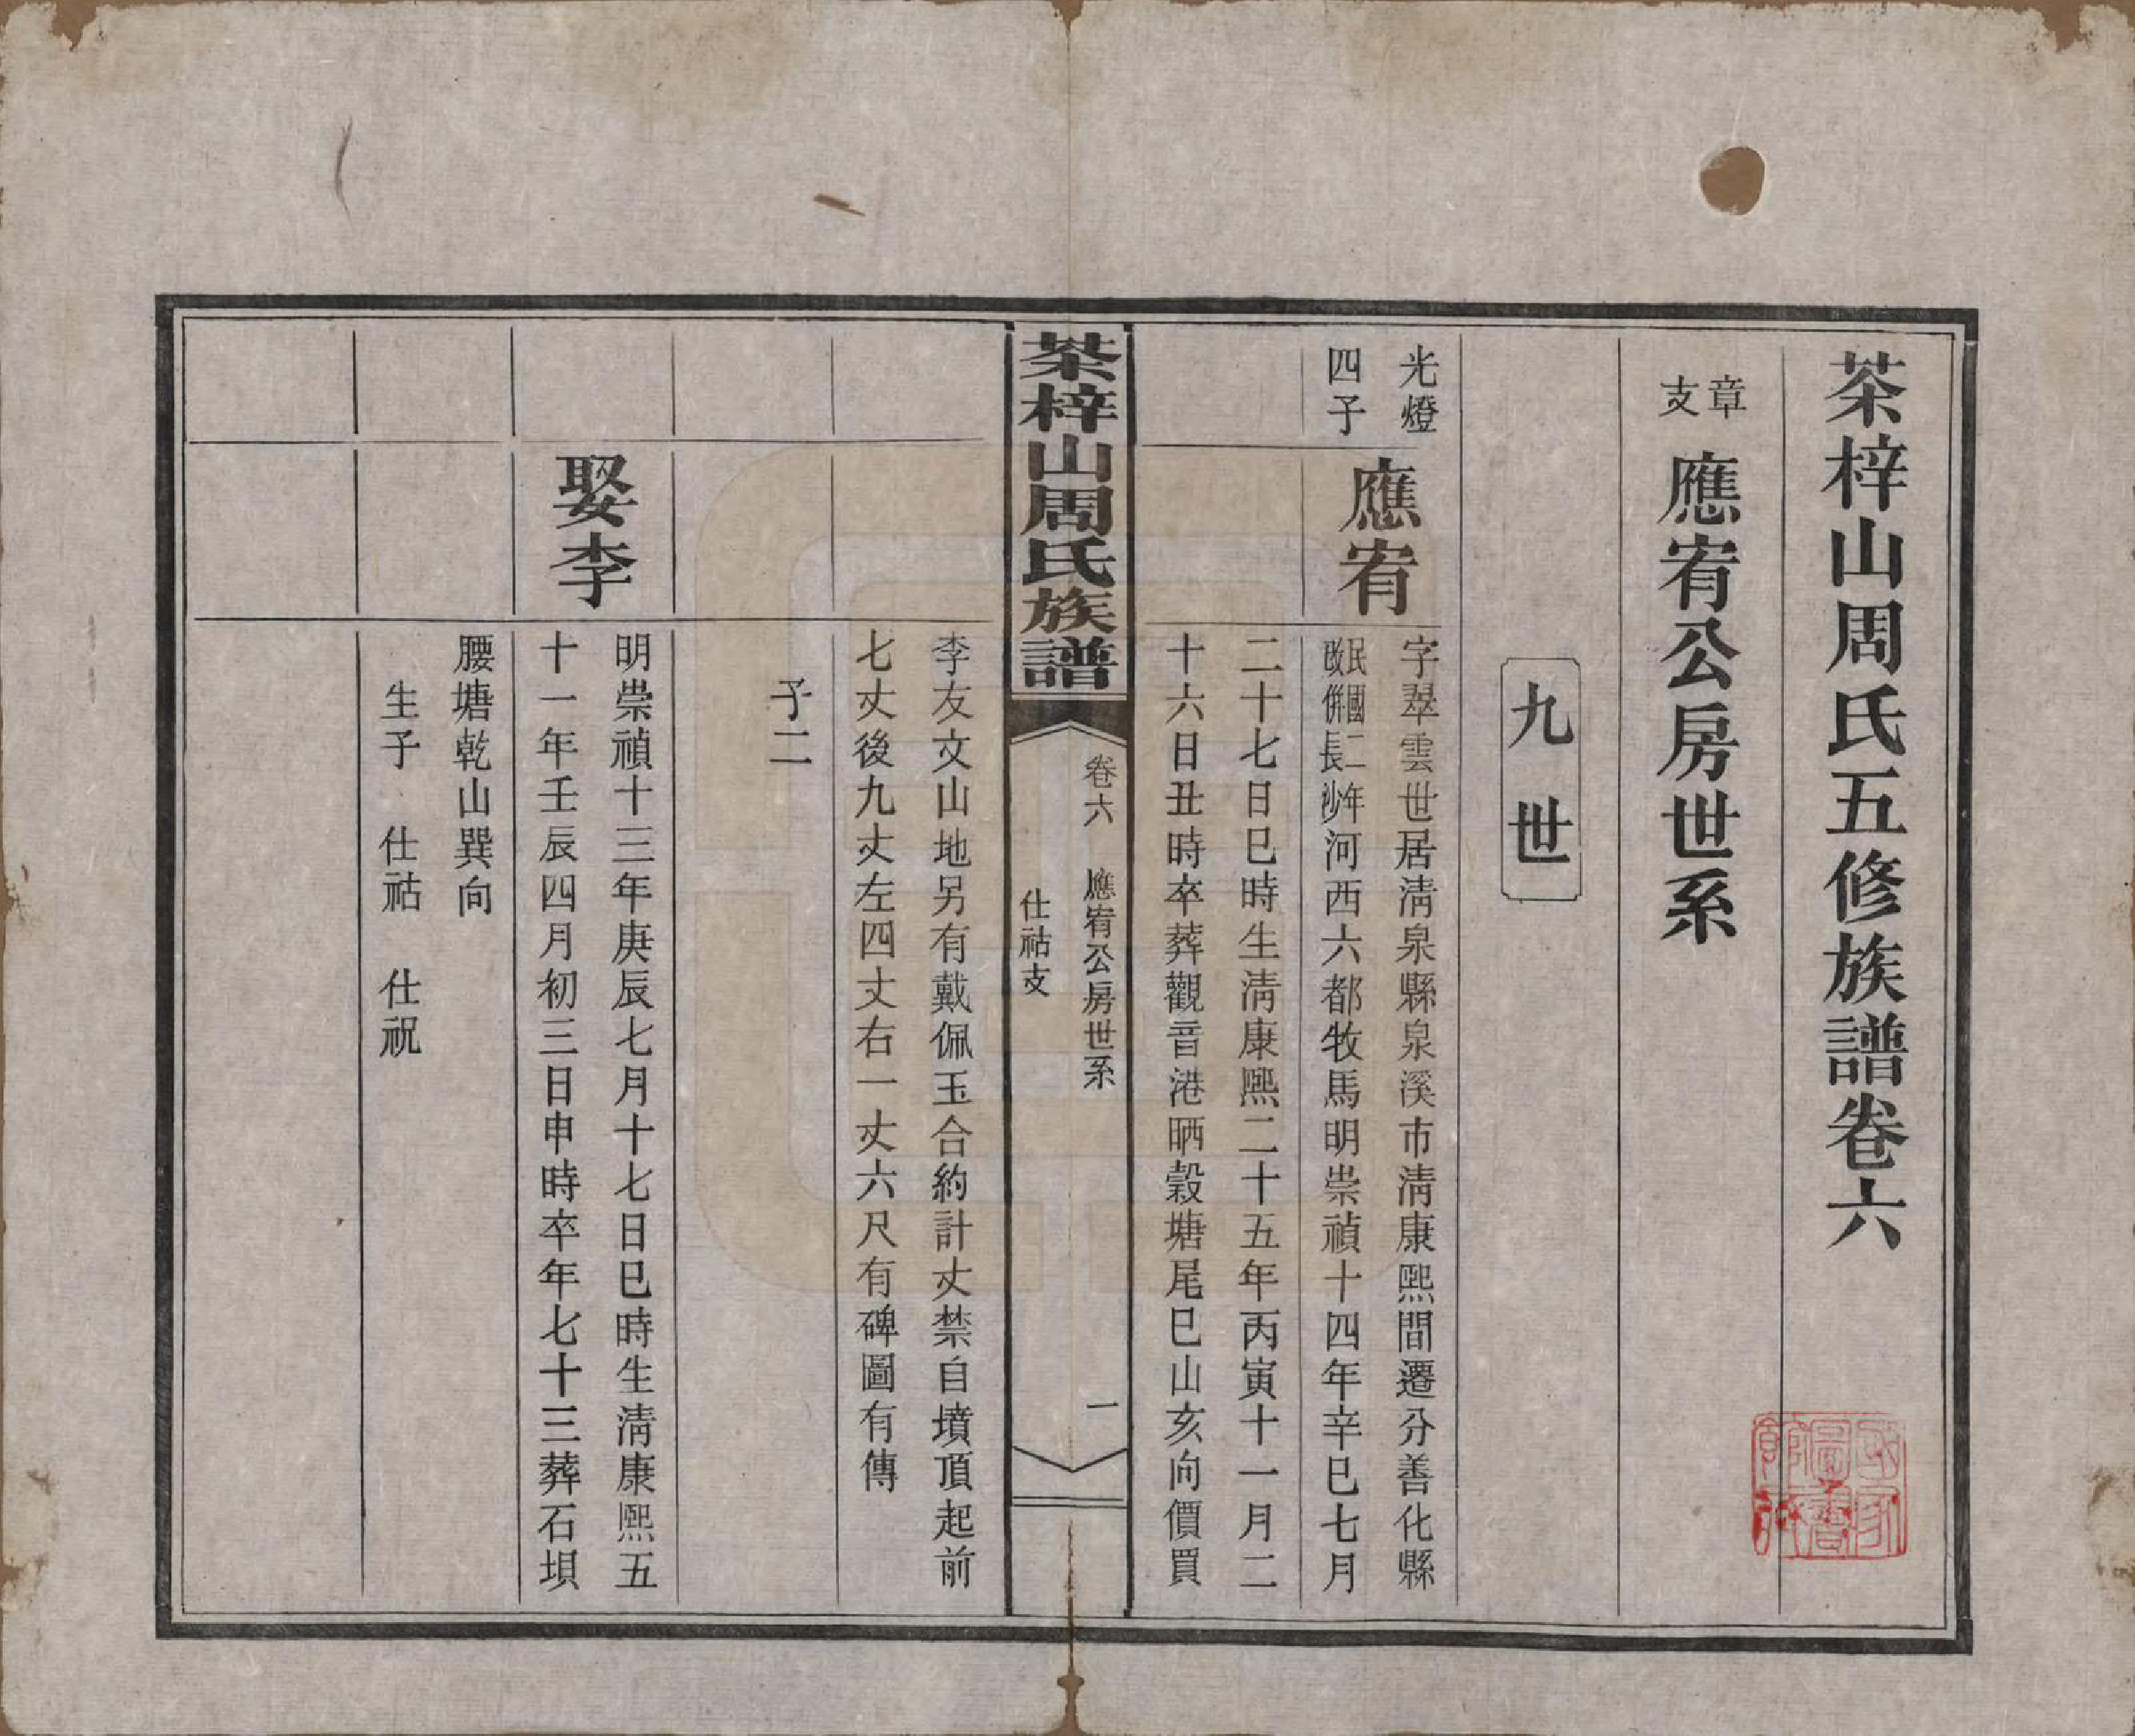 茶梓山周氏五修族譜卷六
章支
應宥公房世系
九世
光燈
四子
應宥
字翠雲世居淸泉縣泉溪市淸康熙間遷分善化縣
民國二年改併長沙
河西六都牧馬明崇禎十四年辛巳七月
二十七日巳時生淸康熙二十五年丙寅十一月二
十六日丑時卒葬觀音港晒穀塘尾巳山亥向價買
茶梓山周氏族譜
卷六
應宥公房世系
仕祜支
一
李友文山地另有戴佩玉合約計丈禁自墳頂起前
七丈後九丈左四丈右一丈六尺有碑圖有傳
子二
娶李
明崇禎十三年庚辰七月十七日巳時生淸康熙五
十一年壬辰四月初三日申時卒年七十三葬石垻
腰塘乾山巽向
生子 仕祜 仕祝